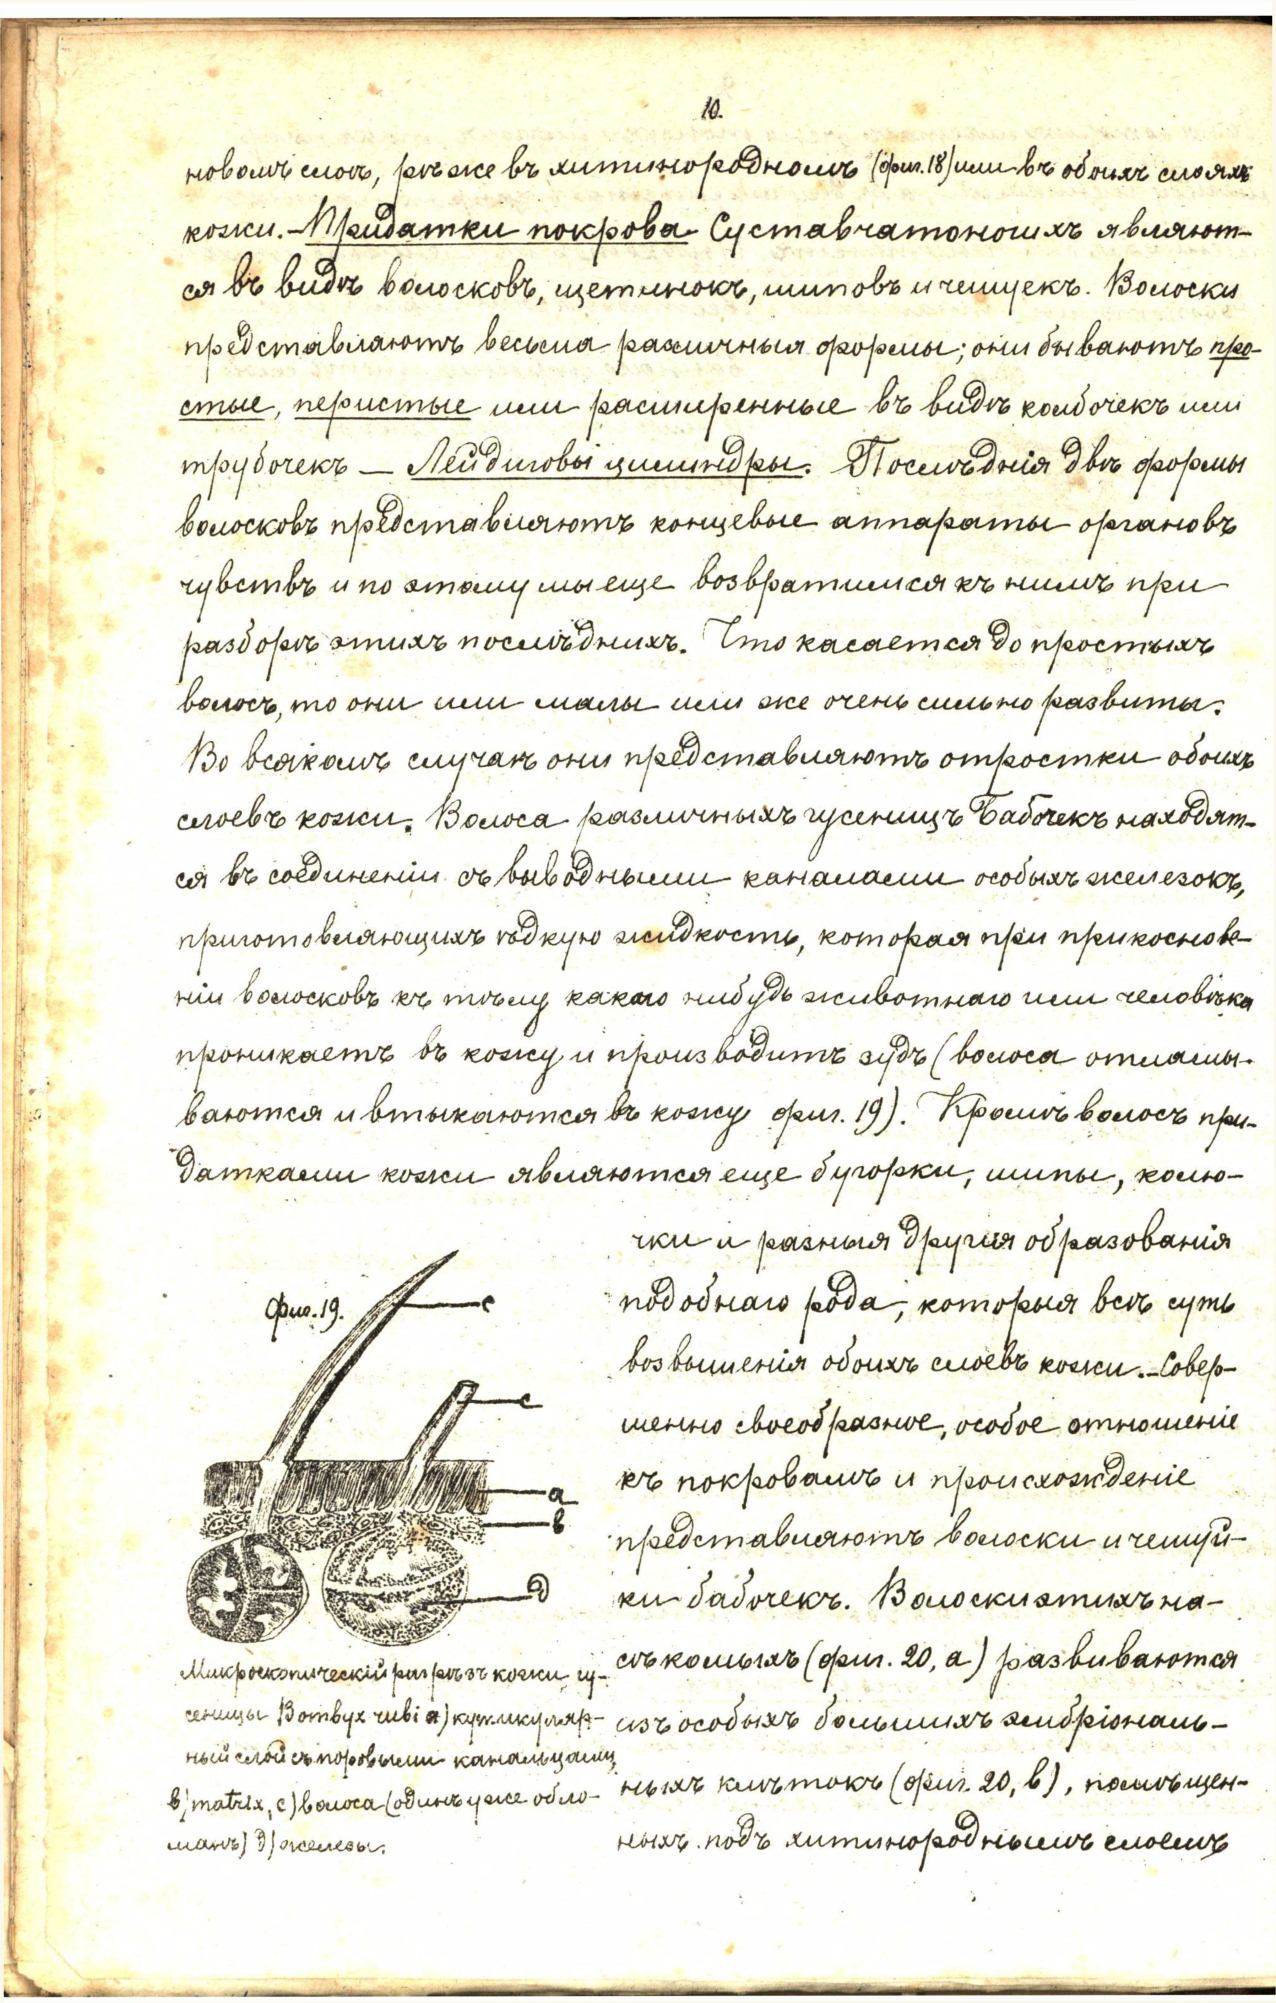 10.
новомъ слоѣ, рѣже въ хитинородномъ (фиг. 18) или въ обоихъ слояхъ
кожи. – Придатки покрова Суставчатоногихъ являют-
ся въ видѣ волосковъ, щетинокъ, шиповъ и чешуекъ. Волоски
представляютъ весьма различныя формы; они бываютъ про-
стые, перистые или расширенные въ видѣ колбочекъ или
трубочекъ — Лейдиговы цилиндры. Послѣднія двѣ формы
волосковъ представляютъ концевые аппараты органовъ
чувствъ и по этому мы еще возвратимся къ нимъ при
разборѣ этихъ послѣднихъ. Что касается до простыхъ
волосъ, то они или малы или же очень сильно развиты.
Во всякомъ случаѣ они представляютъ отростки обоихъ
слоевъ кожи. Волоса различныхъ гусеницъ Бабочекъ находят-
ся въ соединеніи съ выводными каналами особыхъ железокъ,
приготовляющихъ ѣдкую жидкость, которая при прикоснове-
ніи волосковъ къ тѣлу какаго нибудь животнаго или человѣка
проникаетъ въ кожу и производитъ зудъ (волоса отламы-
ваются и втыкаются въ кожу фиг. 19). Кромѣ волосъ при-
датками кожи являются еще бугорки, шипы, колю-
чки и разныя другія образованія
подобнаго рода, которыя всѣ суть
возвышенія обоихъ слоевъ кожи. – Совер-
шенно своеобразное, особое отношеніе
къ покровамъ и происхожденіе
представляютъ волоски и чешуй-
ки бабочекъ. Волоски этихъ на-
сѣкомыхъ (фиг. 20, а) развиваются
изъ особыхъ большихъ эмбріональ-
ныхъ клѣтокъ (фиг. 20, в), помѣщен-
ныхъ подъ хитинороднымъ слоемъ
Фиг. 19.
с
с
а
в
д
Микроскопическій разрѣзъ кожи гу-
сеницы Bombyx rubi а) кутикуляр-
ный слой съ поровыми канальцами,
в) matrix, с) волоса (одинъ уже обло-
манъ) д) железы.